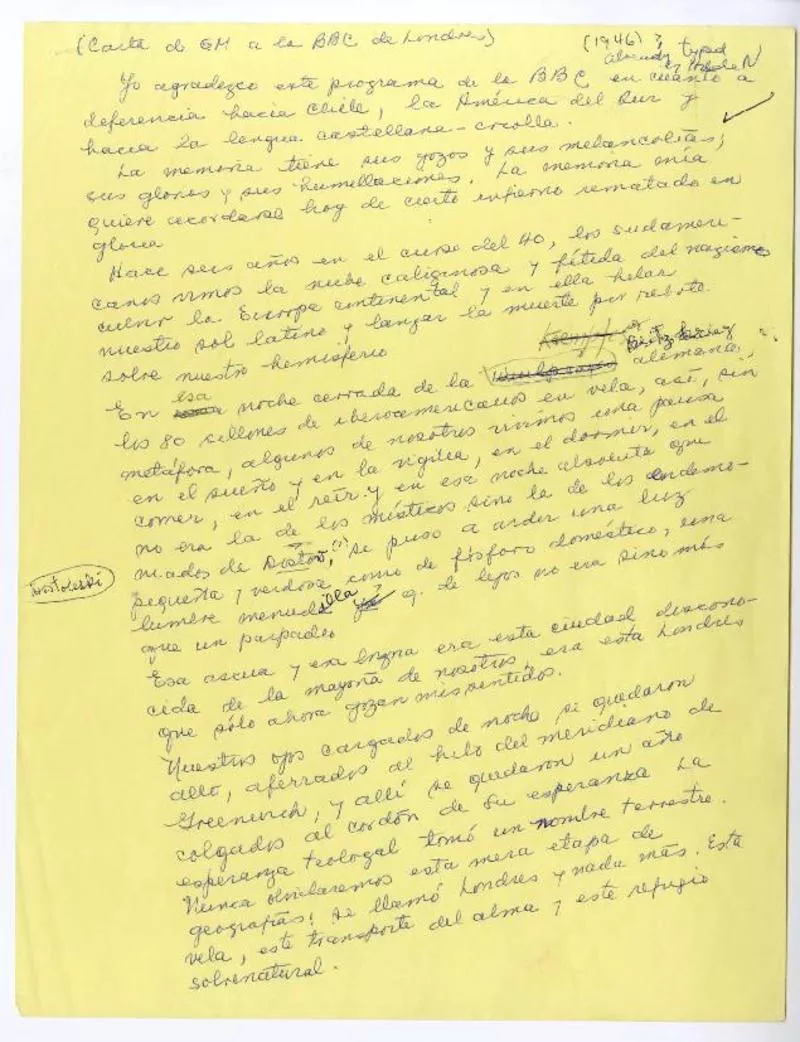 (Carta de GM a la BBC de Londres) (1946)?
already typed
by
Yo agradezco este programa de la BBC en cuanto a
deferencia hacia Chile, la América del Sur y
hacia la lengua castellana-criolla.
La memoria tiene sus gozos y sus melancolías;
sus glorias y sus humillaciones. La memoria mía
quiere recordarse hoy de cierto infierno rematado en
gloria
Hace seis años en el curso del 40, los sudameri-
canos vimos la nube caliginosa y fétida del nazismo
cubrir la Europa continental y en ella helar
nuestro sol latino y lanzar la muerte por rebote
sobre nuestro hemisferio
En esa noche cerrada de la alemana,
los 80 millones de iberoamericanos en vela, así, sin
metáfora, algunos de nosotros vivimos una pausa
en el sueño y en la vigilia, en el dormir, en el
comer, en el reír y en esa noche absoluta que
no era la de los místicos sino la de los endemo-
niados de Dostoieski, se puso a arder una luz
pequeña y verdosa como de fósforo doméstico, una
lumbre menudilla q. de lejos no era sino más
que un parpadeo
Esa ascua y esa brizna era esta ciudad descono-
cida de la mayoría de nosotros, era esta Londres
que sólo ahora gozan mis sentidos.
Nuestros ojos cargados de noche se quedaron
allo, aferrados al hilo del meridiano de
Greenwich, y allí se quedaron un año
colgados al cordón de su esperanza La
esperanza teologal tomó un nombre terrestre.
Nunca olvidaremos esta mera etapa de
geografías: se llamó Londres y nada más. Esta
vela, este transporte del alma y este refugio
sobrenatural.